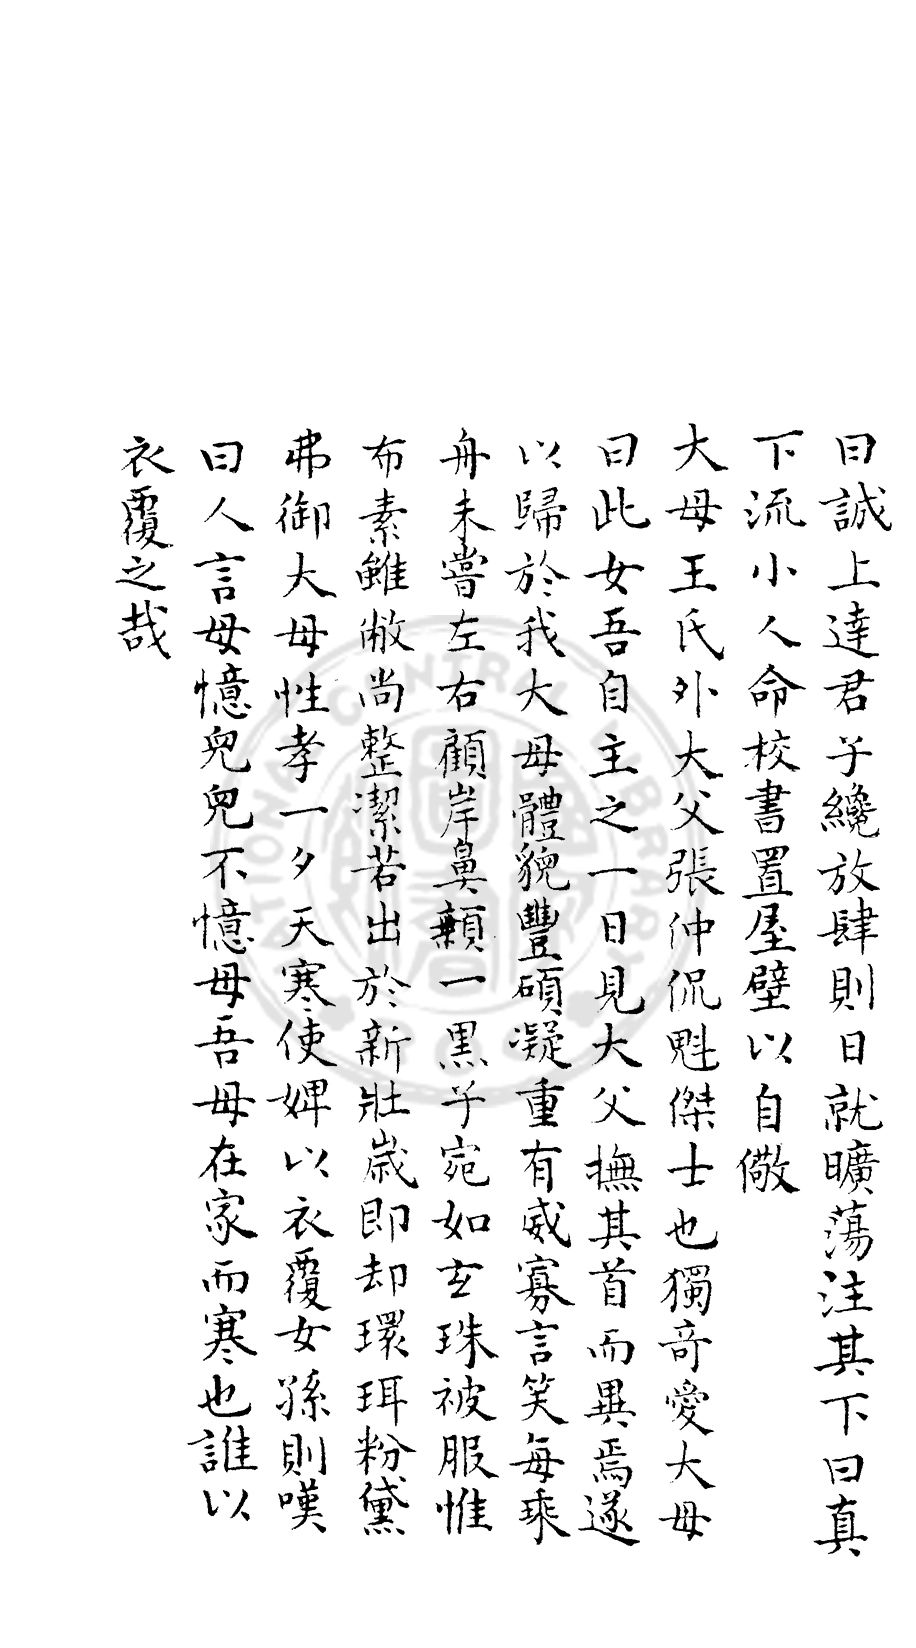 曰誠上達君子纔放肆則日就曠蕩注其下曰真
下流小人命校書置屋壁以自儆
大母王氏外大父張仲侃魁傑士也獨奇愛大母
曰此女吾自主之一日見大父撫其首而異焉遂
以歸於我大母體貌豐碩凝重有威寡言笑每乘
舟未嘗左右顧岸鼻顙一黑子宛如玄珠被服惟
布素雖敝尚整潔若出於新壯歲即却環珥粉黛
弗御大母性孝一夕天寒使婢以衣覆女孫則嘆
曰人言母憶兒兒不憶母吾母在家而寒也誰以
衣覆之哉
NATIONAL CENTRAL LIBRARY